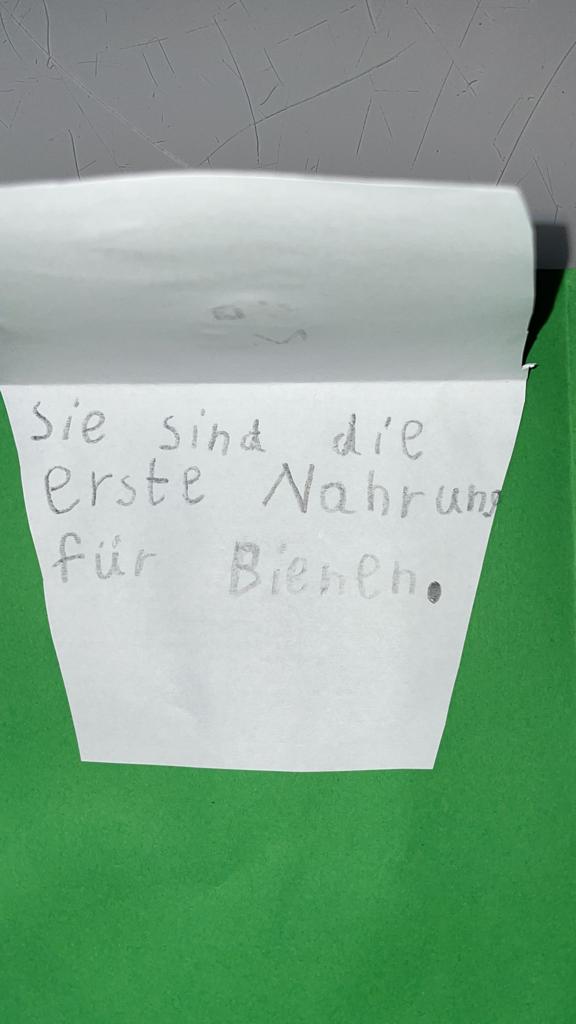 Sie sind die
erste Nahrung
für Bienen.